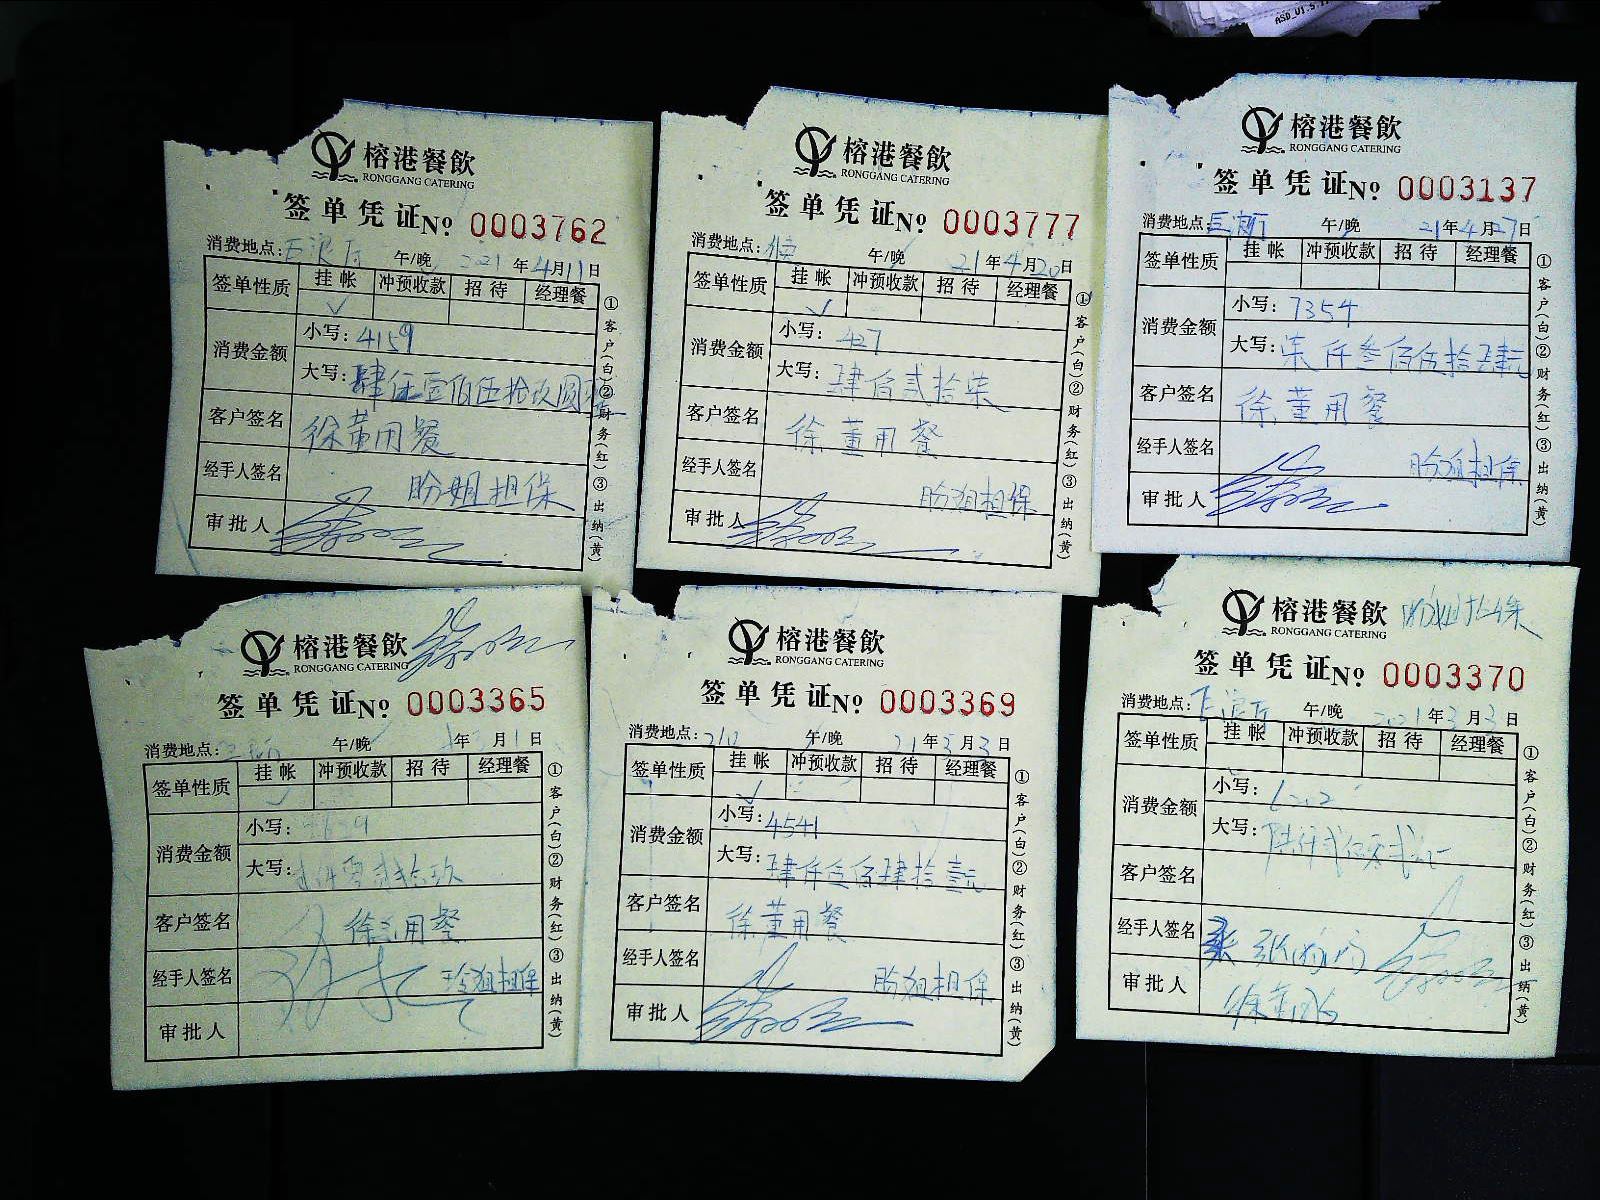 ASD_V1.5.1
榕港餐飲
RONGGANG CATERING
签单凭证No 0003762
消费地点: 午/晚 2021年4月11日
签单性质 挂帐 冲预收款 招待 经理餐
✓
消费金额 小写:4159
大写:肆仟壹佰伍拾玖圆整
客户签名 徐董用餐
经手人签名 盼姐担保
审批人
①客户(白)②财务(红)③出纳(黄)
榕港餐飲
RONGGANG CATERING
签单凭证No 0003777
消费地点: 午/晚 21年4月20日
签单性质 挂帐 冲预收款 招待 经理餐
✓
消费金额 小写:427
大写:肆佰贰拾柒
客户签名 徐董用餐
经手人签名 盼姐担保
审批人
①客户(白)②财务(红)③出纳(黄)
榕港餐飲
RONGGANG CATERING
签单凭证No 0003137
消费地点: 午/晚 21年4月27日
签单性质 挂帐 冲预收款 招待 经理餐
消费金额 小写:7354
大写:柒仟叁佰伍拾肆元
客户签名 徐董用餐
经手人签名 盼姐担保
审批人
①客户(白)②财务(红)③出纳(黄)
榕港餐飲
RONGGANG CATERING
签单凭证No 0003365
消费地点: 午/晚 年3月1日
签单性质 挂帐 冲预收款 招待 经理餐
✓
消费金额 小写:
大写:
客户签名 徐 用餐
经手人签名 姐担保
审批人
①客户(白)②财务(红)③出纳(黄)
榕港餐飲
RONGGANG CATERING
签单凭证No 0003369
消费地点:210 午/晚 21年3月3日
签单性质 挂帐 冲预收款 招待 经理餐
✓
消费金额 小写:4541
大写:肆仟伍佰肆拾壹元
客户签名 徐董用餐
经手人签名 盼姐担保
审批人
①客户(白)②财务(红)③出纳(黄)
榕港餐飲 盼姐担保
RONGGANG CATERING
签单凭证No 0003370
消费地点: 午/晚 2021年3月3日
签单性质 挂帐 冲预收款 招待 经理餐
消费金额 小写:6202
大写:陆仟贰佰零贰元
客户签名
经手人签名
审批人
①客户(白)②财务(红)③出纳(黄)